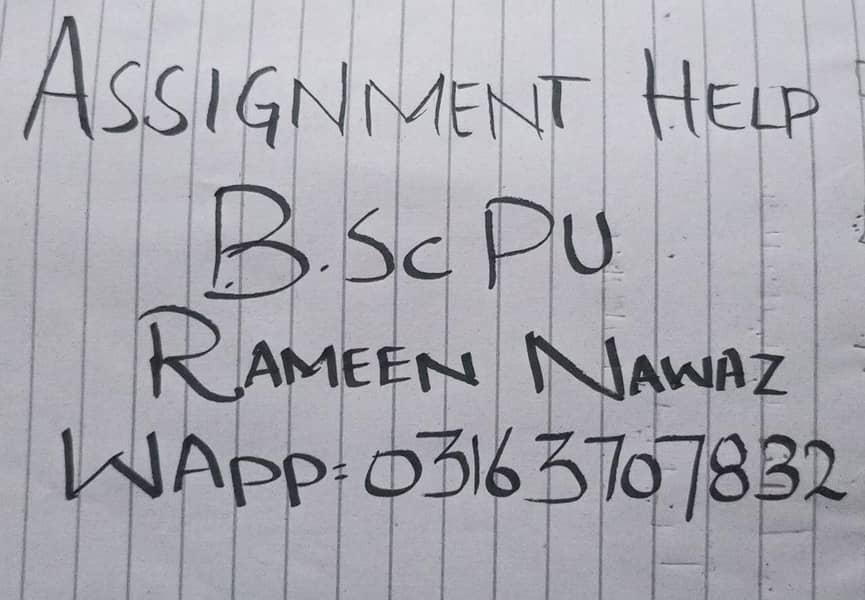 ASSIGNMENT HELP
B.Sc PU
RAMEEN NAWAZ
WAPP= 03163707832